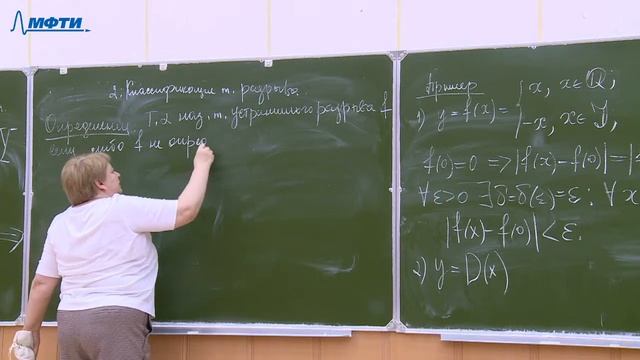 МФТИ
2. Классификация т. разрыва.
Определение. Т. 2 наз. т. устранимого разрыва f
если либо f не опре
Пример
1) y = f(x) = { x, x ∈ Q;
-x, x ∈ J,
f(0) = 0 ⇒ |f(x) - f(0)| = |
∀ ε > 0 ∃ δ = δ(ε) = ε : ∀ x
|f(x) - f(0)| < ε.
2) y = D(x)